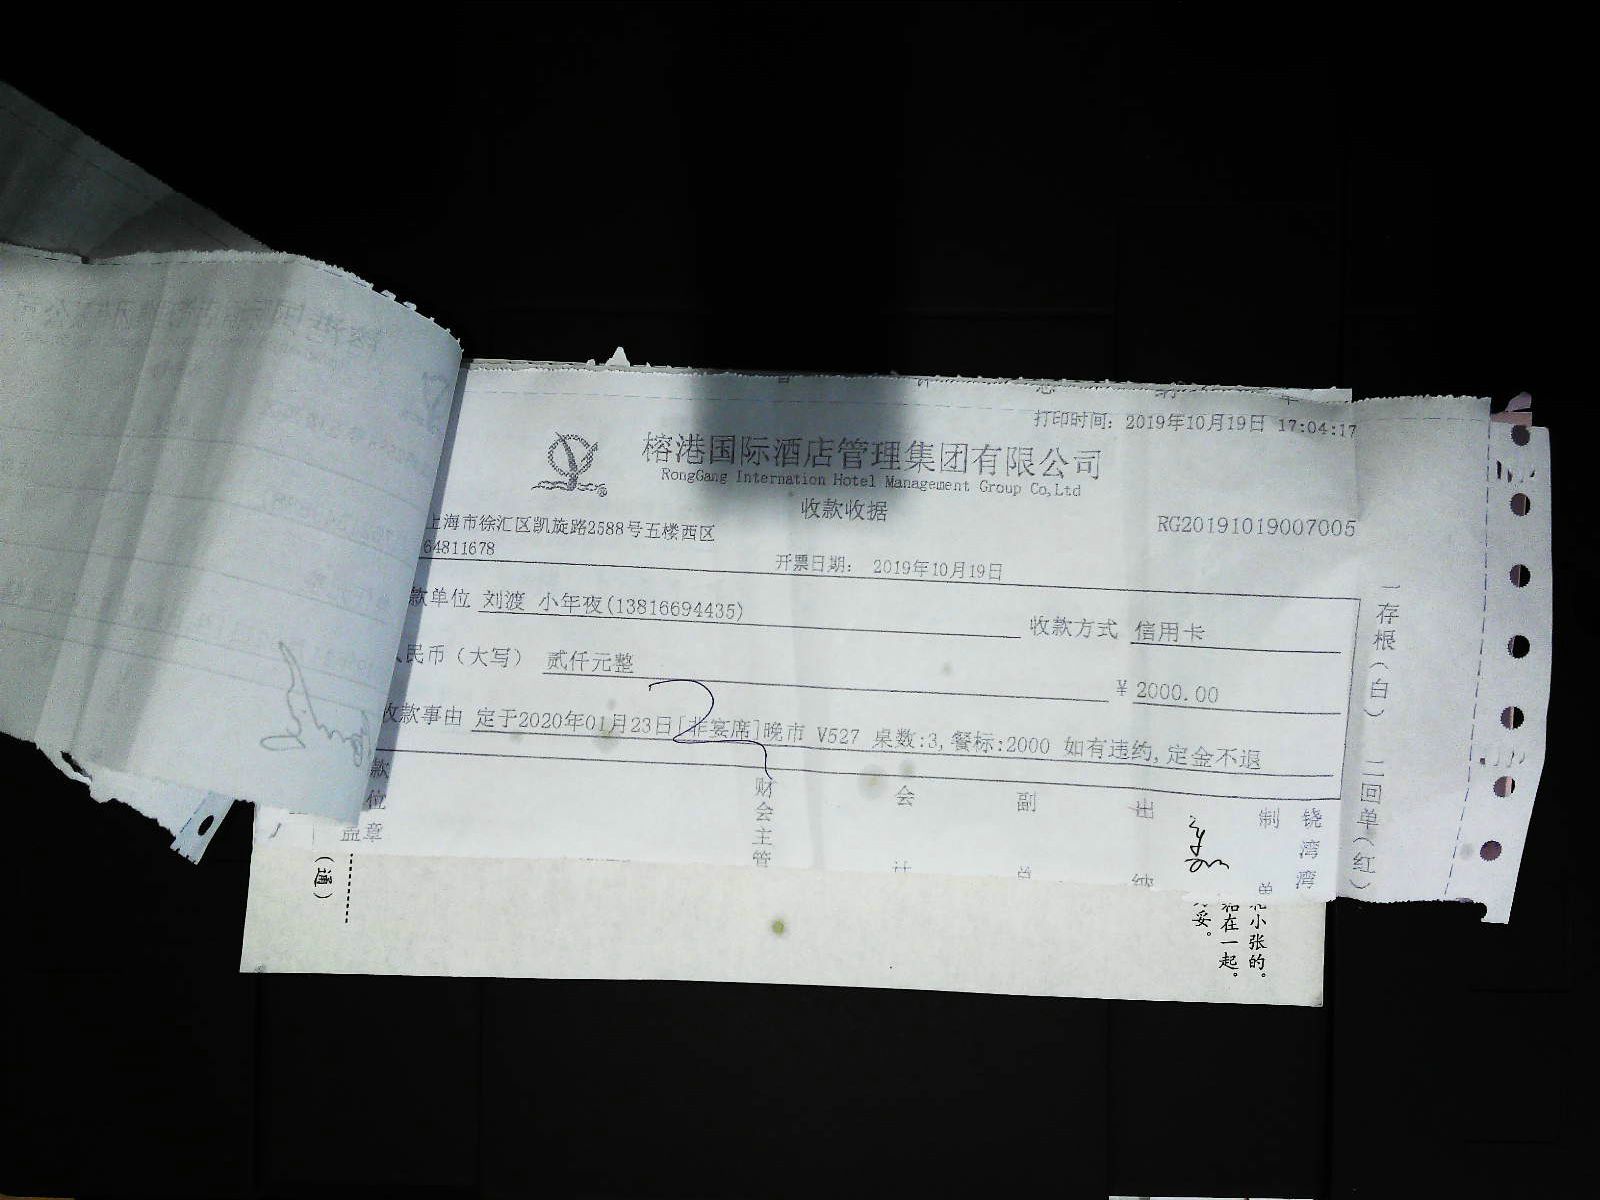 打印时间: 2019年10月19日 17:04:17
榕港国际酒店管理集团有限公司
RongGang Internation Hotel Management Group Co,Ltd
收款收据
上海市徐汇区凯旋路2588号五楼西区
RG20191019007005
64811678
开票日期: 2019年10月19日
款单位 刘渡 小年夜(13816694435)
收款方式 信用卡
民币（大写） 贰仟元整
¥ 2000.00
收款事由 定于2020年01月23日[非宴席]晚市 V527 桌数:3,餐标:2000 如有违约,定金不退
款
位
盖章
财会主管
会计
副单
出纳
制单
饶湾湾
一存根(白) 二回单(红)
(通)
小张的。
粘在一起。
妥。